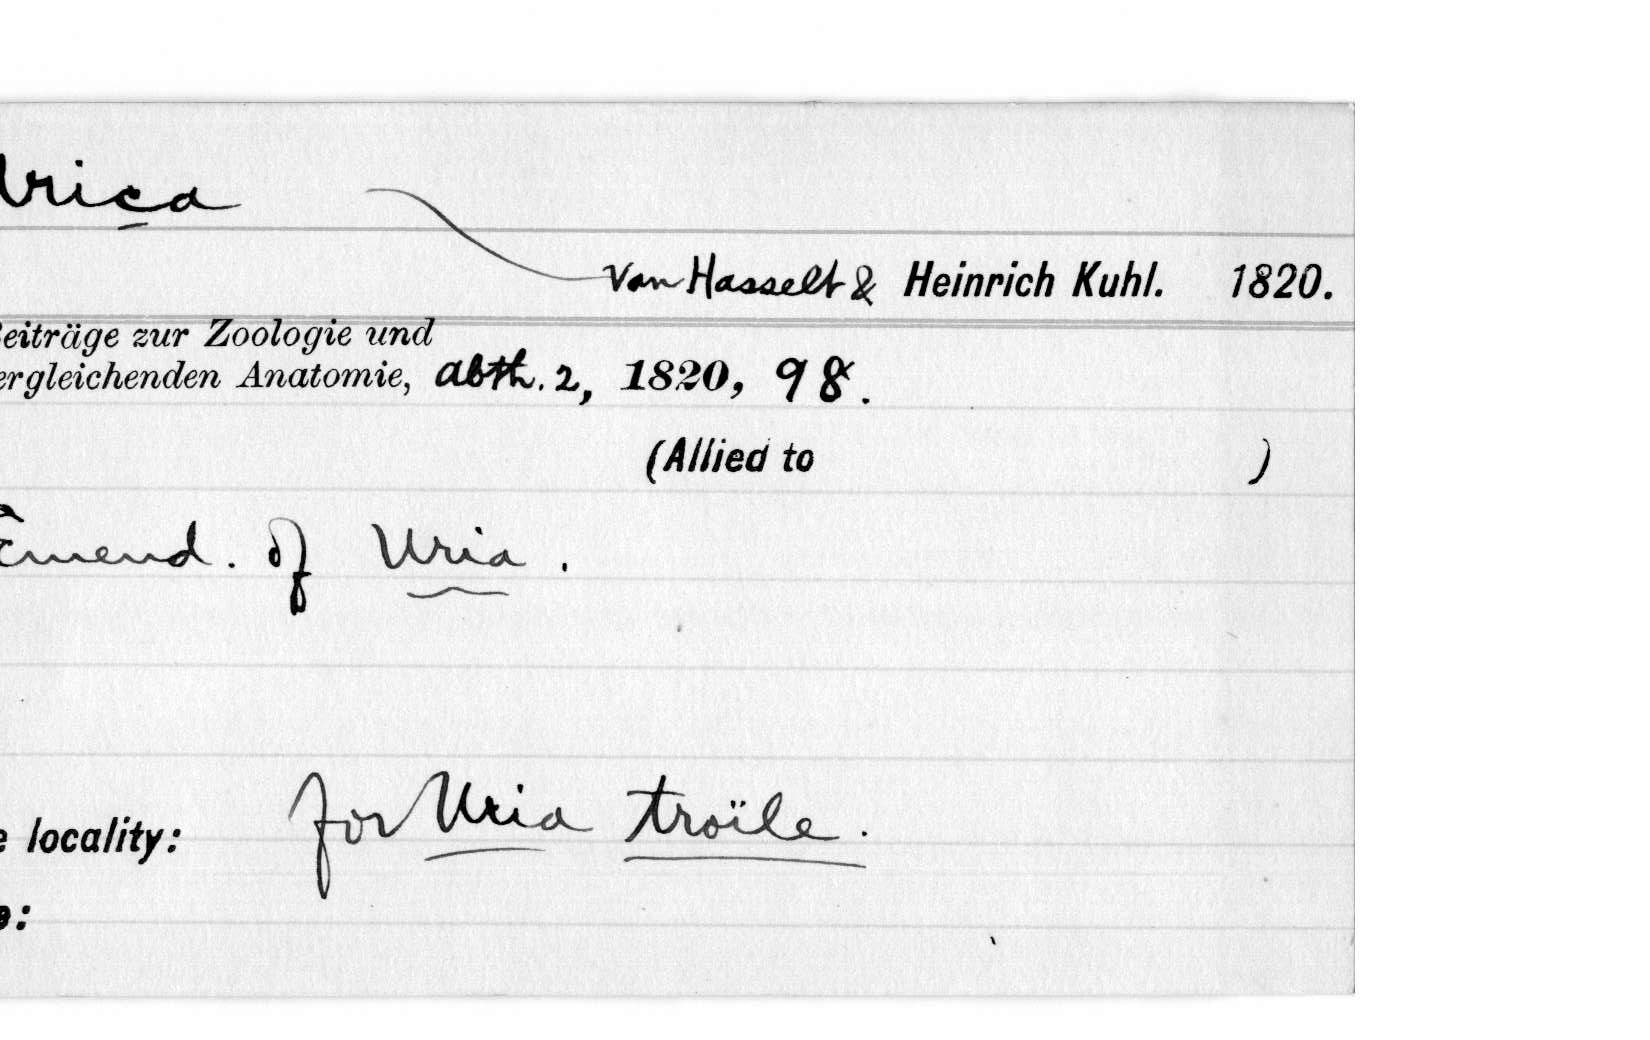 Urica
van Hasselt & Heinrich Kuhl. 1820.
Beiträge zur Zoologie und
ergleichenden Anatomie, abth. 2, 1820, 98.
(Allied to )
Emend. of Uria.
e locality: for Uria troïle.
e: